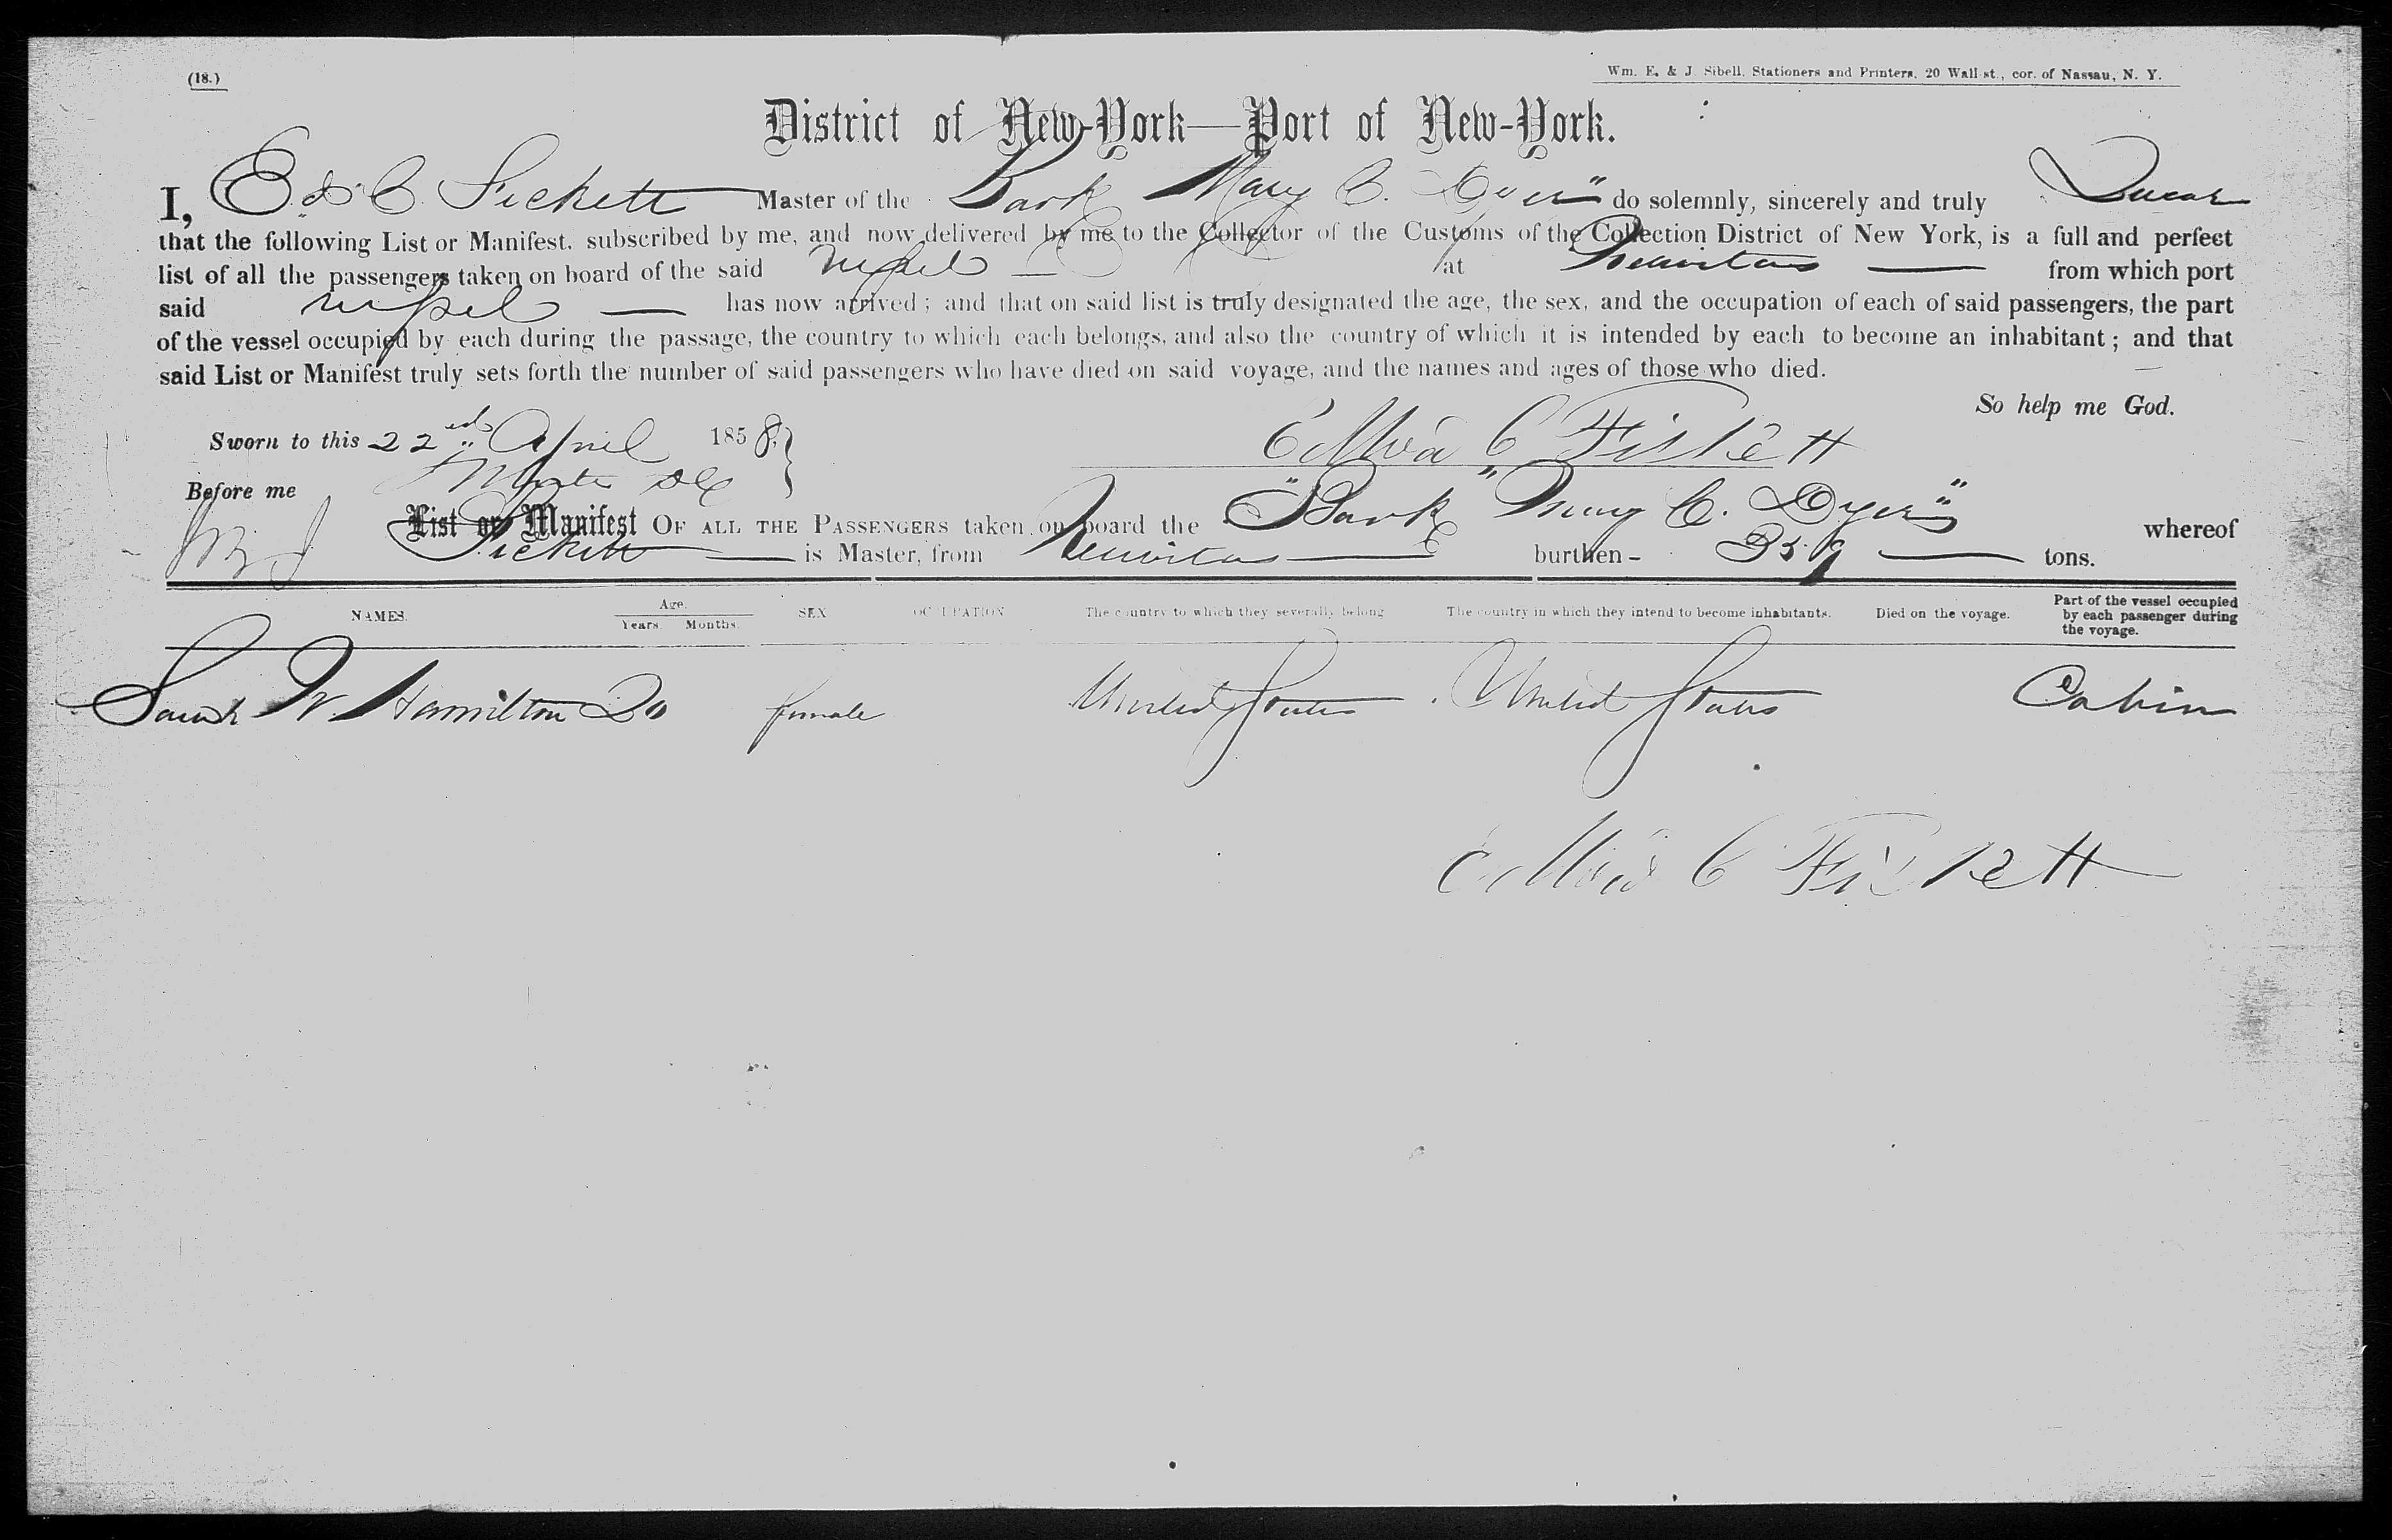 (18.)
Wm. E. & J. Sibell, Stationers and Printers, 20 Wall-st., cor. of Nassau, N. Y.
District of New-York—Port of New-York.
I, Ed. C. Fickett Master of the Bark Mary C. Dyer" do solemnly, sincerely and truly Swear
that the following List or Manifest, subscribed by me, and now delivered by me to the Collector of the Customs of the Collection District of New York, is a full and perfect
list of all the passengers taken on board of the said vessel — at Neuvitas — from which port
said vessel — has now arrived; and that on said list is truly designated the age, the sex, and the occupation of each of said passengers, the part
of the vessel occupied by each during the passage, the country to which each belongs, and also the country of which it is intended by each to become an inhabitant; and that
said List or Manifest truly sets forth the number of said passengers who have died on said voyage, and the names and ages of those who died.
So help me God.
Sworn to this 22nd April 1858.
C Fickett
Before me
List or Manifest OF ALL THE PASSENGERS taken on board the "Bark" "Mary C. Dyer" whereof
Fickett — is Master, from Neuvitas — burthen - 359 — tons.
NAMES. Age. Years. Months. SEX OCCUPATION The country to which they severally belong The country in which they intend to become inhabitants. Died on the voyage. Part of the vessel occupied by each passenger during the voyage.
Sarah W. Hamilton 20 female United States United States Cabin
C Fickett